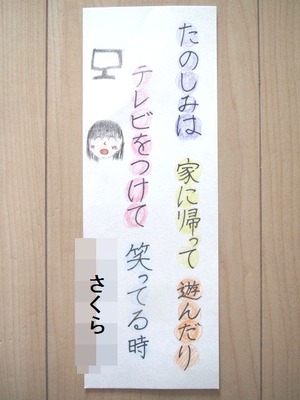 たのしみは 家に帰って 遊んだり
テレビをつけて 笑ってる時
さくら